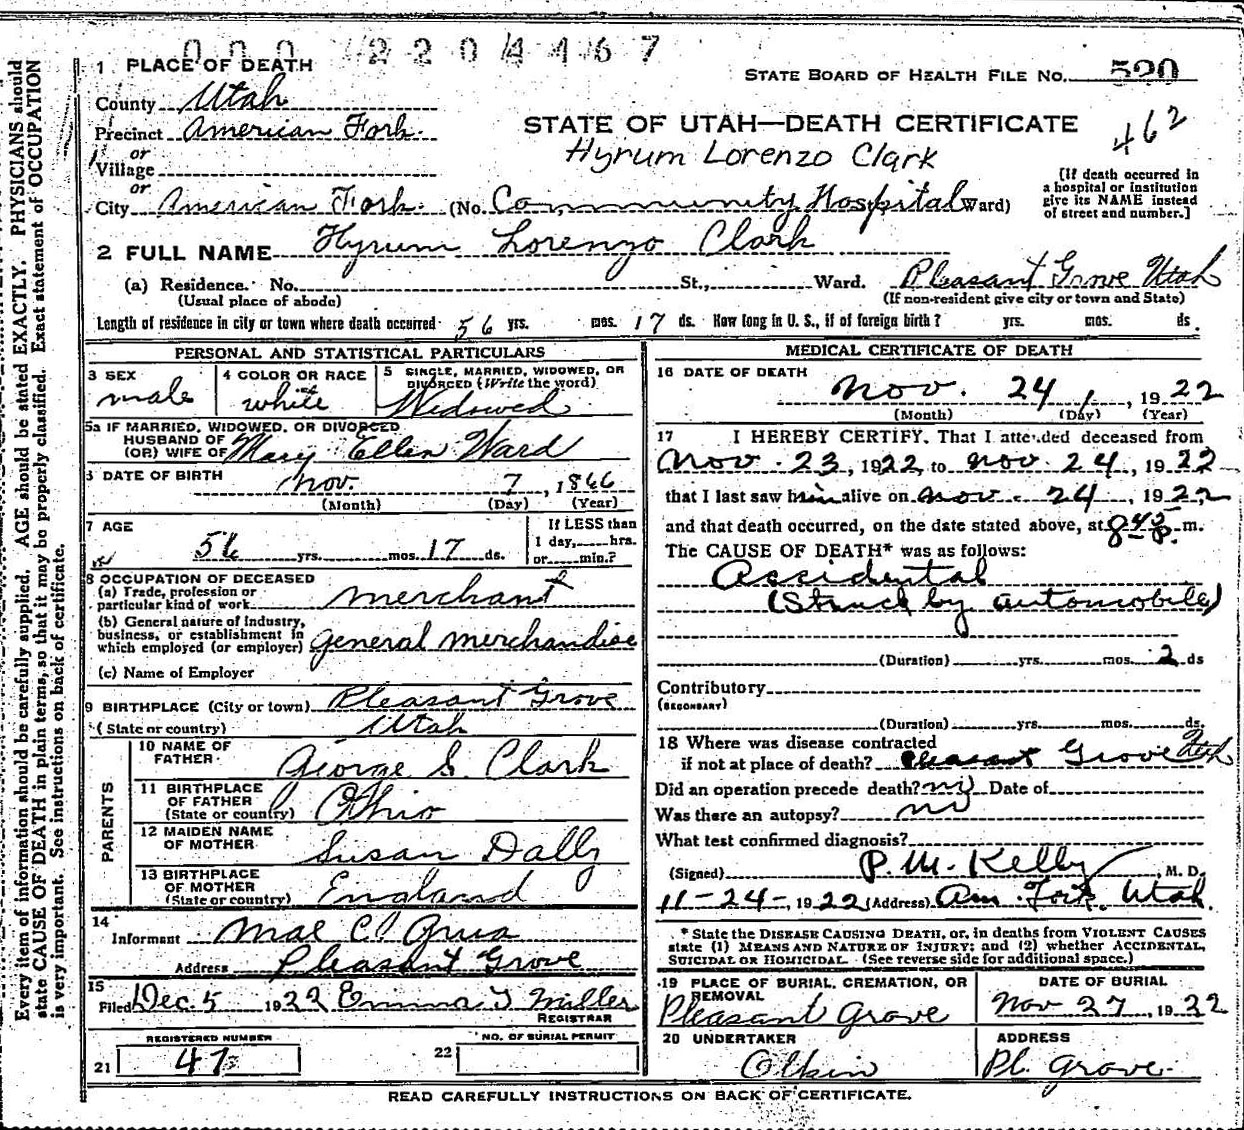 000 2204467
1 PLACE OF DEATH
STATE BOARD OF HEALTH FILE NO. 520
County Utah
Precinct American Fork.
STATE OF UTAH—DEATH CERTIFICATE
462
or
Village
Hyrum Lorenzo Clark
or
City American Fork. (No. Community Hospital Ward)
[If death occurred in
a hospital or institution
give its NAME instead
of street and number.]
2 FULL NAME Hyrum Lorenzo Clark
(a) Residence. No. St., Ward. Pleasant Grove Utah
(Usual place of abode) (If non-resident give city or town and State)
Length of residence in city or town where death occurred 56 yrs. mos. 17 ds. How long in U. S., if of foreign birth? yrs. mos. ds.
PERSONAL AND STATISTICAL PARTICULARS
3 SEX male
4 COLOR OR RACE white
5 SINGLE, MARRIED, WIDOWED, OR
DIVORCED (Write the word)
Widowed
5a IF MARRIED, WIDOWED, OR DIVORCED
HUSBAND OF
(OR) WIFE OF Mary Ellen Ward
6 DATE OF BIRTH Nov. 7, 1866
(Month) (Day) (Year)
7 AGE 56 yrs. mos. 17 ds.
If LESS than
1 day, hrs.
or min.?
8 OCCUPATION OF DECEASED
(a) Trade, profession or
particular kind of work merchant
(b) General nature of industry,
business, or establishment in
which employed (or employer) general merchandise
(c) Name of Employer
9 BIRTHPLACE (City or town) Pleasant Grove
(State or country) Utah
PARENTS
10 NAME OF
FATHER George S. Clark
11 BIRTHPLACE
OF FATHER
(State or country) Ohio
12 MAIDEN NAME
OF MOTHER Susan Dally
13 BIRTHPLACE
OF MOTHER
(State or country) England
14
Informant Mae C. Grua
Address Pleasant Grove
15
Filed Dec. 5 1922 Emma Y Miller
REGISTRAR
REGISTERED NUMBER
21 47
NO. OF BURIAL PERMIT
22
MEDICAL CERTIFICATE OF DEATH
16 DATE OF DEATH
Nov. 24, 1922
(Month) (Day) (Year)
17 I HEREBY CERTIFY, That I attended deceased from
Nov. 23, 1922, to Nov. 24, 1922
that I last saw him alive on Nov. 24, 1922,
and that death occurred, on the date stated above, at 8 45 P. m.
The CAUSE OF DEATH* was as follows:
Accidental
(Struck by automobile)
(Duration) yrs. mos. 2 ds
Contributory
(SECONDARY)
(Duration) yrs. mos. ds.
18 Where was disease contracted
if not at place of death? Pleasant Grove Utah
Did an operation precede death? no Date of
Was there an autopsy? no
What test confirmed diagnosis?
(Signed) P. M. Kelly, M. D.
11-24-, 1922 (Address) Am. Fork, Utah.
* State the DISEASE CAUSING DEATH, or, in deaths from VIOLENT CAUSES
state (1) MEANS AND NATURE OF INJURY; and (2) whether ACCIDENTAL,
SUICIDAL OR HOMICIDAL. (See reverse side for additional space.)
19 PLACE OF BURIAL, CREMATION, OR
REMOVAL
Pleasant Grove
DATE OF BURIAL
Nov 27, 1922
20 UNDERTAKER
Olpin
ADDRESS
Pl. Grove.
READ CAREFULLY INSTRUCTIONS ON BACK OF CERTIFICATE.
Every item of information should be carefully supplied. AGE should be stated EXACTLY. PHYSICIANS should
state CAUSE OF DEATH in plain terms, so that it may be properly classified. Exact statement of OCCUPATION
is very important. See instructions on back of certificate.